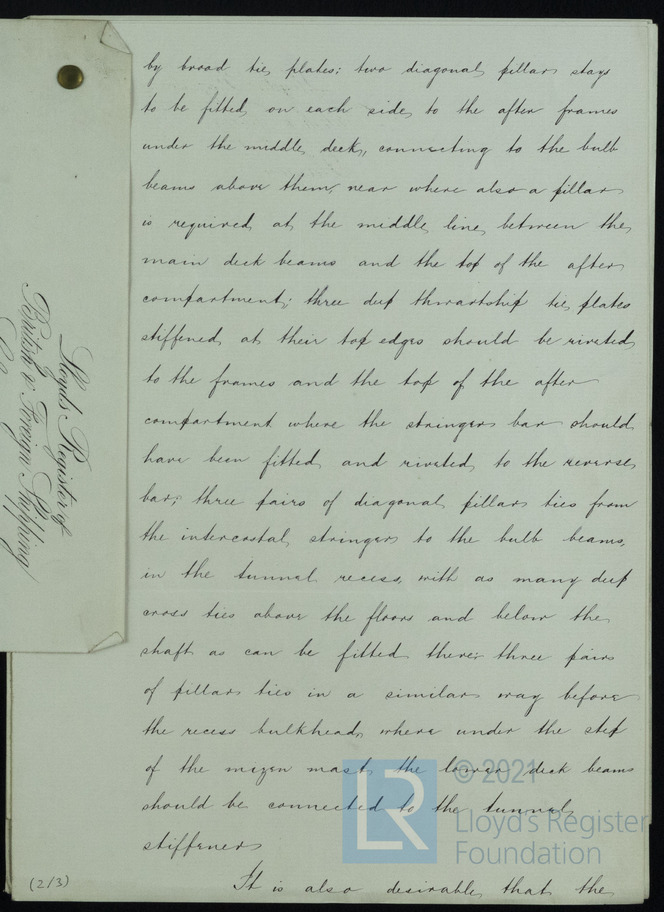 by broad tie plates; two diagonal pillar stays
to be fitted on each side to the after frames
under the middle deck, connecting to the bulb
beams above them, near where also a pillar
is required at the middle line between the
main deck beams and the top of the after
compartment; three deep thwartship tie plates
stiffened at their top edges should be riveted
to the frames and the top of the after
compartment where the stringers bar should
have been fitted and riveted to the reverse
bar; three pairs of diagonal pillar ties from
the intercostal stringers to the bulb beams,
in the tunnel recess, with as many deep
cross ties above the floors and below the
shaft as can be fitted there: three pairs
of pillar ties in a similar way before
the recess bulkhead, where under the step
of the mizen mast, the lower deck beams
should be connected to the tunnel
stiffeners
It is also desirable that the
(2/3)
Lloyds Register of
British & Foreign Shipping
LR
© 2021
Lloyd's Register
Foundation